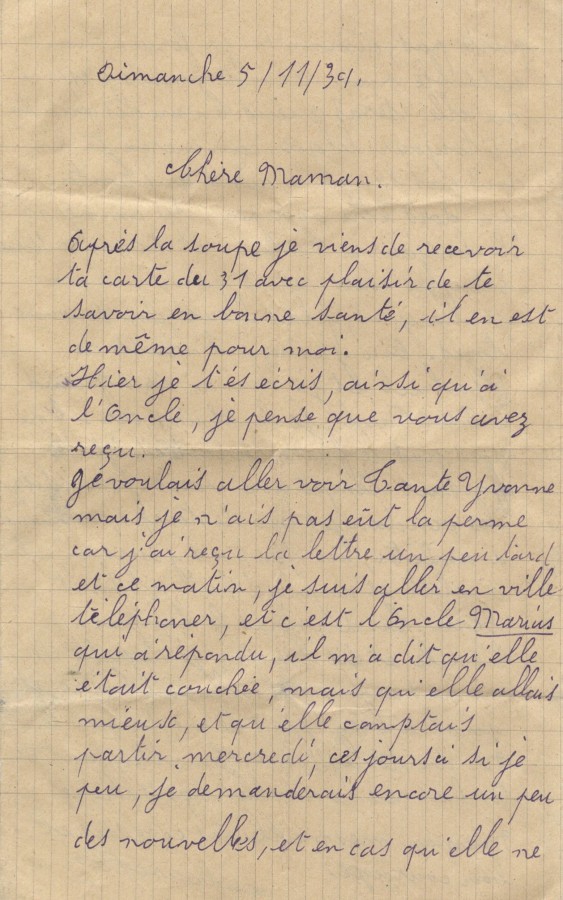 Dimanche 5/11/39.
Chère Maman.
Après la soupe je viens de recevoir
ta carte du 31 avec plaisir de te
savoir en bonne santé, il en est
de même pour moi.
Hier je t'és écris, ainsi qu'á
l'Oncle, je pense que vous avez
reçu.
Je voulais aller voir Tante Yvonne
mais je n'ais pas eût la perme
car j'ai reçu la lettre un peu tard
et ce matin, je suis aller en ville
téléphoner, et c'est l'Oncle Marius
qui a répondu, il m'a dit qu'elle
était couchée, mais qu'elle allais
mieux, et qu'elle comptais
partir mercredi, ces jours ci si je
peu, je demanderais encore un peu
des nouvelles, et en cas qu'elle ne